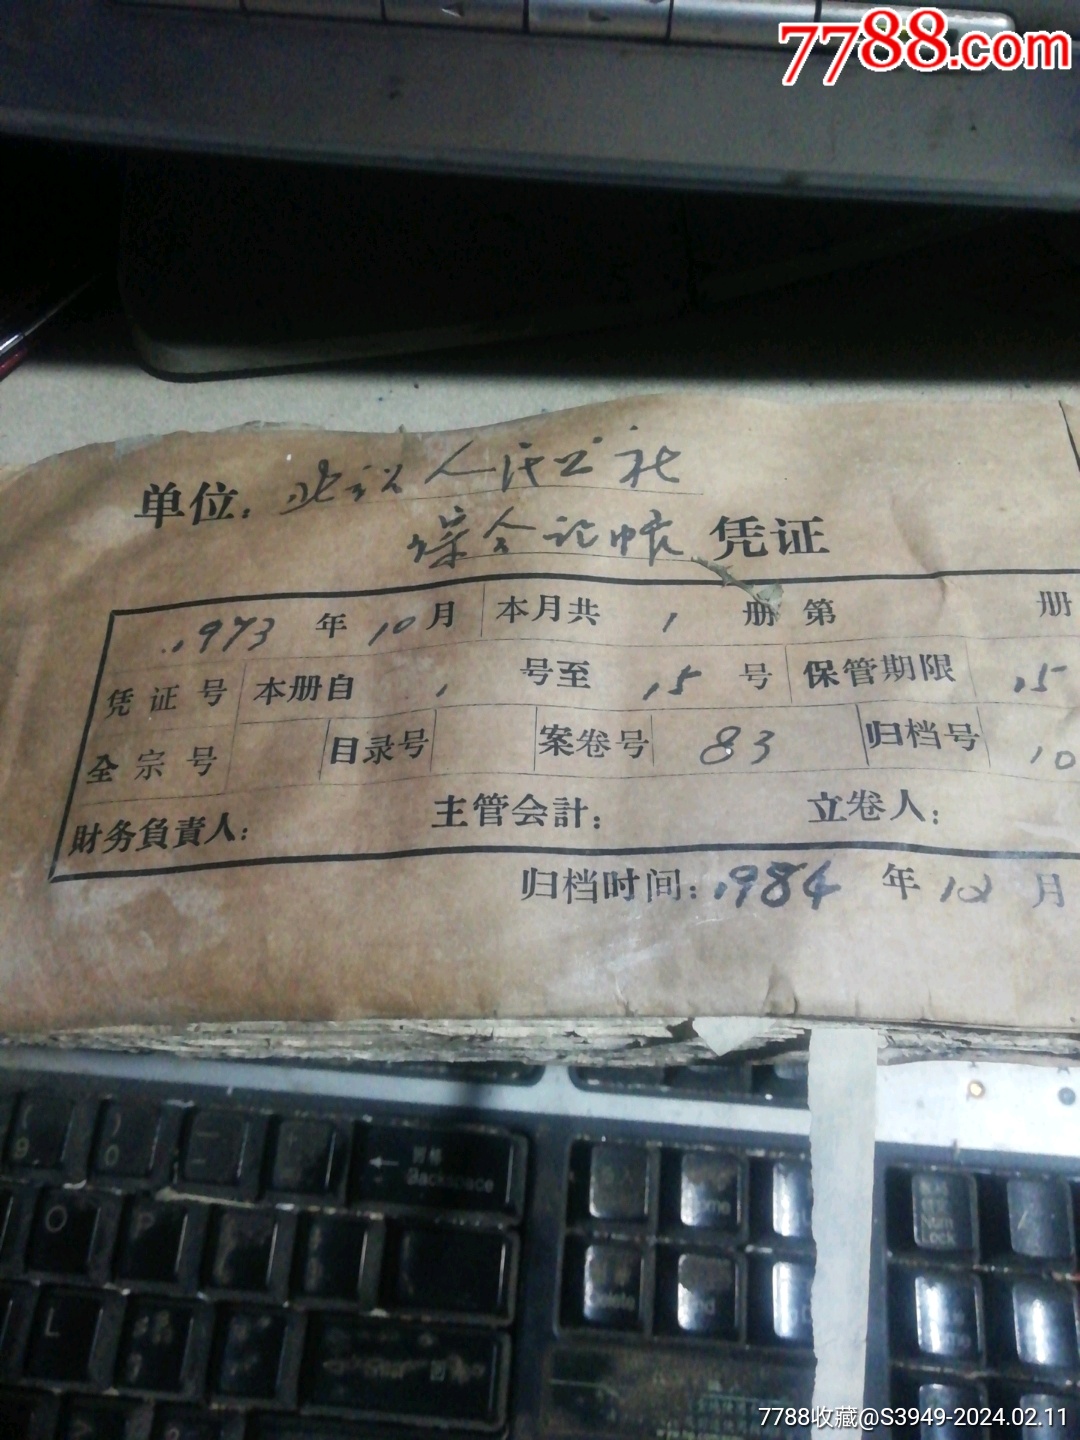 7788.com
单位: 人民公社
综合记帐 凭证
1973 年 10 月 本月共 1 册 第 册
凭证号 本册自 1 号至 15 号 保管期限 15
全宗号 目录号 案卷号 83 归档号 10
財务負責人: 主管会計: 立卷人:
归档时间: 1984 年 12 月
( 9 ) 0 Backspace
O P
L
Num Lock
7788收藏@S3949-2024.02.11